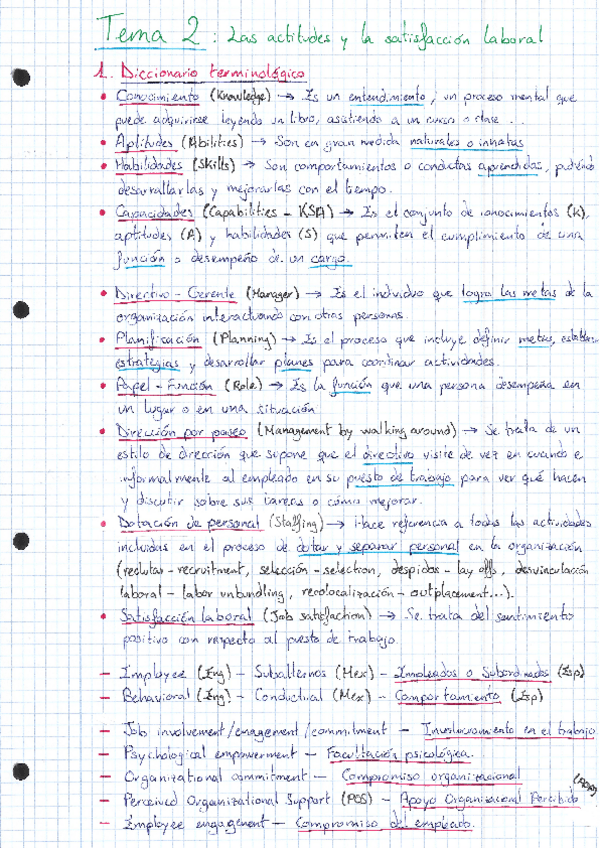 Tema 2: Las actitudes y la satisfacción laboral
1. Diccionario terminológico
• Conocimiento (Knowledge) → Es un entendimiento, un proceso mental que
puede adquirirse leyendo un libro, asistiendo a un curso o clase...
• Aptitudes (Abilities) → Son en gran medida naturales o innatas
• Habilidades (Skills) → Son comportamientos o conductas aprendidas, pudiendo
desarrollarlas y mejorarlas con el tiempo.
• Capacidades (Capabilities - KSA) → Es el conjunto de conocimientos (K),
aptitudes (A) y habilidades (S) que permiten el cumplimiento de una
función o desempeño de un cargo.
• Directivo - Gerente (Manager) → Es el individuo que logra las metas de la
organización interactuando con otras personas.
• Planificación (Planning) → Es el proceso que incluye definir metas, establecer
estrategias y desarrollar planes para coordinar actividades.
• Papel - Función (Role) → Es la función que una persona desempeña en
un lugar o en una situación
• Dirección por paseo (Management by walking around) → Se trata de un
estilo de dirección que supone que el directivo visite de vez en cuando e
informalmente al empleado en su puesto de trabajo para ver qué hacen
y discutir sobre sus tareas o cómo mejorar.
• Dotación de personal (Staffing) → Hace referencia a todas las actividades
incluidas en el proceso de dotar y separar personal en la organización
(reclutar - recruitment, selección - selection, despidos - lay offs, desvinculación
laboral - labor unbundling, recolocalización - outplacement...).
• Satisfacción laboral (Job satisfaction) → Se trata del sentimiento
positivo con respecto al puesto de trabajo.
- Employee (Eng) - Subalternos (Mex) - Empleados o Subordinados (Esp)
- Behavioral (Eng) - Conductual (Mex) - Comportamiento (Esp)
- Job involvement/enagement/commitment - Involucramiento en el trabajo
- Psychological empowerment - Facultación psicológica.
- Organizational commitment - Compromiso organizacional
- Perceived Organizational Support (POS) - Apoyo Organizacional Percibido
- Employee engagement - Compromiso del empleado.